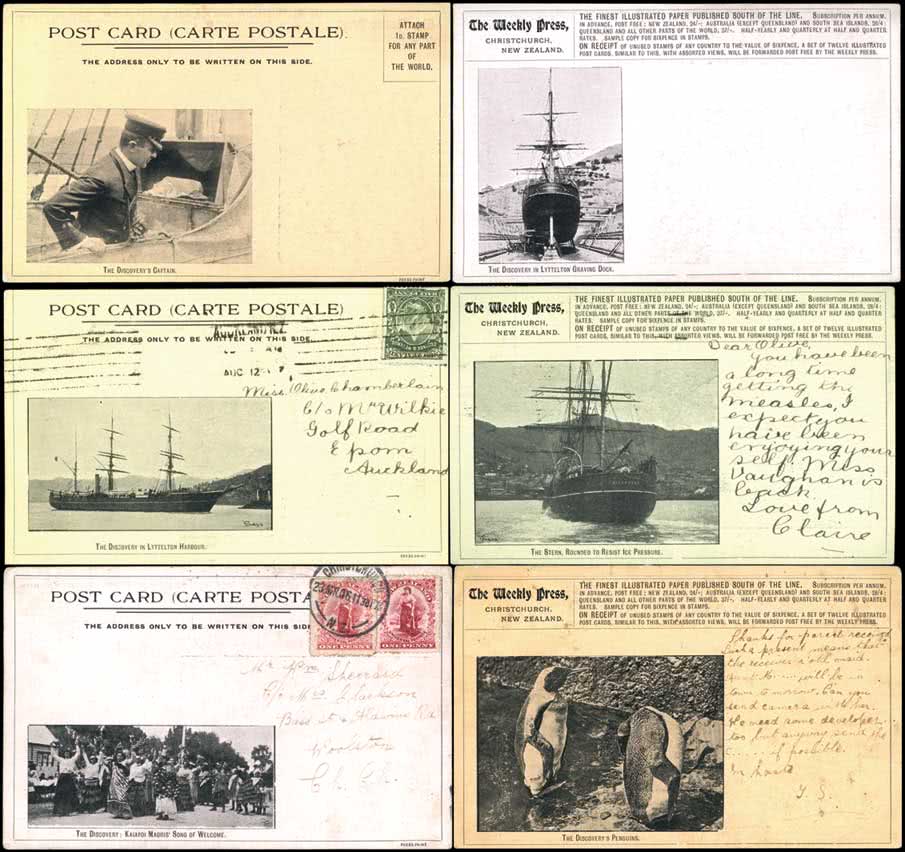 POST CARD (CARTE POSTALE).
THE ADDRESS ONLY TO BE WRITTEN ON THIS SIDE.
ATTACH
1D. STAMP
FOR ANY PART
OF
THE WORLD.
THE DISCOVERY'S CAPTAIN.
PRESS PRINT
The Weekly Press,
CHRISTCHURCH,
NEW ZEALAND.
THE FINEST ILLUSTRATED PAPER PUBLISHED SOUTH OF THE LINE. SUBSCRIPTION PER ANNUM,
IN ADVANCE, POST FREE: NEW ZEALAND, 24/-; AUSTRALIA (EXCEPT QUEENSLAND) AND SOUTH SEA ISLANDS, 28/4:
QUEENSLAND AND ALL OTHER PARTS OF THE WORLD, 37/-. HALF-YEARLY AND QUARTERLY AT HALF AND QUARTER
RATES. SAMPLE COPY FOR SIXPENCE IN STAMPS.
ON RECEIPT OF UNUSED STAMPS OF ANY COUNTRY TO THE VALUE OF SIXPENCE, A SET OF TWELVE ILLUSTRATED
POST CARDS, SIMILAR TO THIS, WITH ASSORTED VIEWS, WILL BE FORWARDED POST FREE BY THE WEEKLY PRESS.
THE DISCOVERY IN LYTTELTON GRAVING DOCK.
POST CARD (CARTE POSTALE)
THE ADDRESS ONLY TO BE WRITTEN ON THIS SIDE.
AUCKLAND N.Z.
AUG 12
Miss Olive Chamberlain
C/o Mr Wilkie
Golf Road
Epsom
Auckland
THE DISCOVERY IN LYTTELTON HARBOUR.
PRESS PRINT
The Weekly Press,
CHRISTCHURCH,
NEW ZEALAND.
THE FINEST ILLUSTRATED PAPER PUBLISHED SOUTH OF THE LINE. SUBSCRIPTION PER ANNUM,
IN ADVANCE, POST FREE: NEW ZEALAND, 24/-; AUSTRALIA (EXCEPT QUEENSLAND) AND SOUTH SEA ISLANDS, 28/4:
QUEENSLAND AND ALL OTHER PARTS OF THE WORLD, 37/-. HALF-YEARLY AND QUARTERLY AT HALF AND QUARTER
RATES. SAMPLE COPY FOR SIXPENCE IN STAMPS.
ON RECEIPT OF UNUSED STAMPS OF ANY COUNTRY TO THE VALUE OF SIXPENCE, A SET OF TWELVE ILLUSTRATED
POST CARDS, SIMILAR TO THIS, WITH ASSORTED VIEWS, WILL BE FORWARDED POST FREE BY THE WEEKLY PRESS.
Dear Olive,
You have been
a long time
getting the
measles, I
expect you
have been
enjoying your
self. Miss
Vaughan is
back
Love from
Claire
THE STERN, ROUNDED TO RESIST ICE PRESSURE.
POST CARD (CARTE POSTA
THE ADDRESS ONLY TO BE WRITTEN ON THIS SID
CHRISTCHURCH
ONE PENNY
ONE PENNY
Mr Wm Sherrard
C/o Mrs Clackson
Bass St &
Woolston
Ch. Ch.
THE DISCOVERY: KAIAPOI MAORIS' SONG OF WELCOME.
PRESS PRINT
The Weekly Press,
CHRISTCHURCH,
NEW ZEALAND.
THE FINEST ILLUSTRATED PAPER PUBLISHED SOUTH OF THE LINE. SUBSCRIPTION PER ANNUM,
IN ADVANCE, POST FREE: NEW ZEALAND, 24/-; AUSTRALIA (EXCEPT QUEENSLAND) AND SOUTH SEA ISLANDS, 28/4:
QUEENSLAND AND ALL OTHER PARTS OF THE WORLD, 37/-. HALF-YEARLY AND QUARTERLY AT HALF AND QUARTER
RATES. SAMPLE COPY FOR SIXPENCE IN STAMPS.
ON RECEIPT OF UNUSED STAMPS OF ANY COUNTRY TO THE VALUE OF SIXPENCE, A SET OF TWELVE ILLUSTRATED
POST CARDS, SIMILAR TO THIS, WITH ASSORTED VIEWS, WILL BE FORWARDED POST FREE BY THE WEEKLY PRESS.
Thanks for
Such a present means that
the receiver is old maid.
will be in
town to morrow. Can you
send camera in with her.
We need some developer
too but anyway send the
if possible.
In haste
THE DISCOVERY'S PENGUINS.